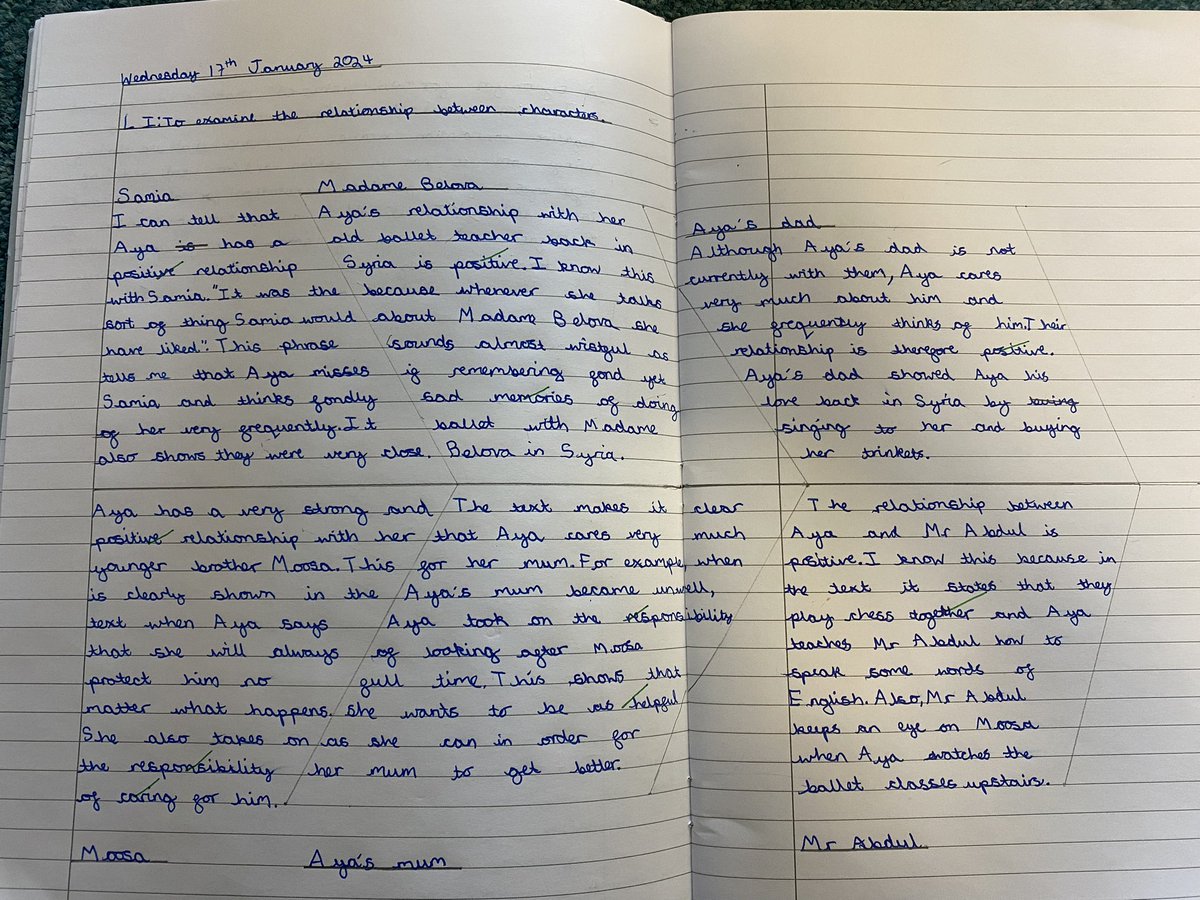 Wednesday 17th January 2024
L I: To examine the relationship between characters.
Samia
I can tell that
Aya is has a
positive relationship
with Samia. "It was the
sort of thing Samia would
have liked". This phrase
tells me that Aya misses
Samia and thinks fondly
of her very frequently. It
also shows they were very close.
Madame Belova
Aya's relationship with her
old ballet teacher back in
Syria is positive. I know this
because whenever she talks
about Madame Belova she
sounds almost wistful as
if remembering fond yet
sad memories of doing
ballet with Madame
Belova in Syria.
Aya's dad
Although Aya's dad is not
currently with them, Aya cares
very much about him and
she frequently thinks of him. Their
relationship is therefore positive.
Aya's dad showed Aya his
love back in Syria by
singing to her and buying
her trinkets.
Aya has a very strong and
positive relationship with her
younger brother Moosa. This
is clearly shown in the
text when Aya says
that she will always
protect him no
matter what happens.
She also takes on
the responsibility
of caring for him.
Moosa
The text makes it clear
that Aya cares very much
for her mum. For example, when
Aya's mum became unwell,
Aya took on the responsibility
of looking after Moosa
full time. This shows that
she wants to be as helpful
as she can in order for
her mum to get better.
Aya's mum
The relationship between
Aya and Mr Abdul is
positive. I know this because in
the text it states that they
play chess together and Aya
teaches Mr Abdul how to
speak some words of
English. Also, Mr Abdul
keeps an eye on Moosa
when Aya watches the
ballet classes upstairs.
Mr Abdul